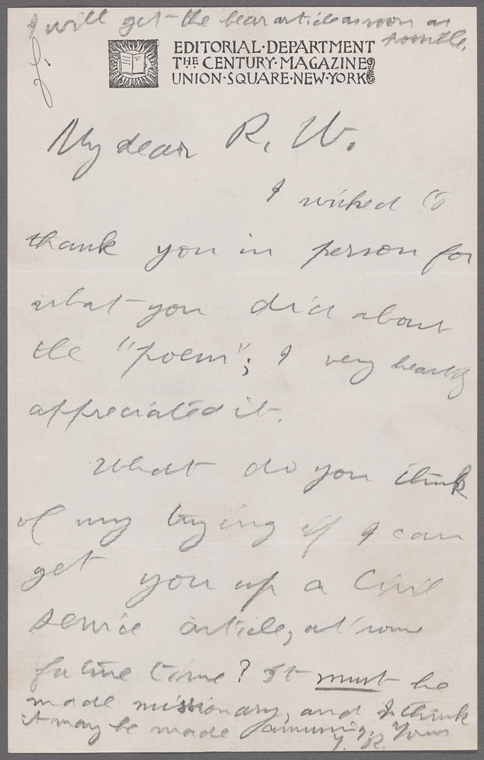 I will get the bear article as soon as
possible.
EDITORIAL·DEPARTMENT
THE CENTURY·MAGAZINE
UNION·SQUARE·NEW·YORK
My dear R. W.
I wished to
thank you in person for
what you did about
the "poem"; I very heartily
appreciated it.
What do you think
of my trying if I can
get you up a Civil
service article, at some
future time? It must be
made missionary, and I think
it may be made amusing. Yours
T. R.